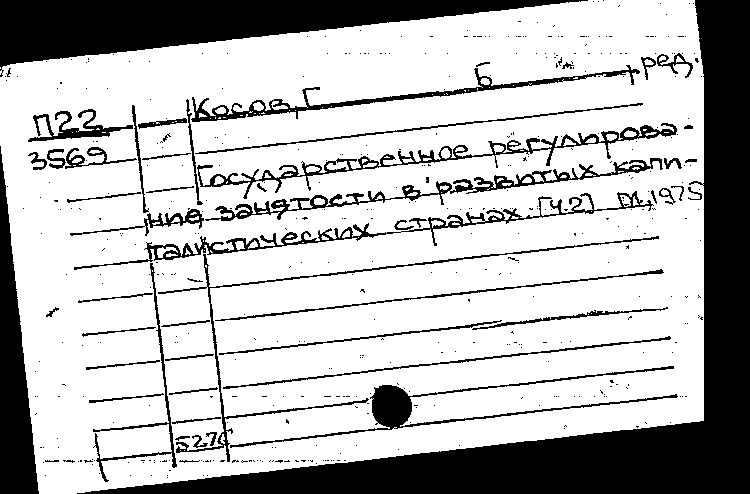 П22 Косов, Г Б , ред.
3569
Государственное регулирова-
ние занятости в развитых капи-
талистических странах. [Ч.2] М., 1975
5276